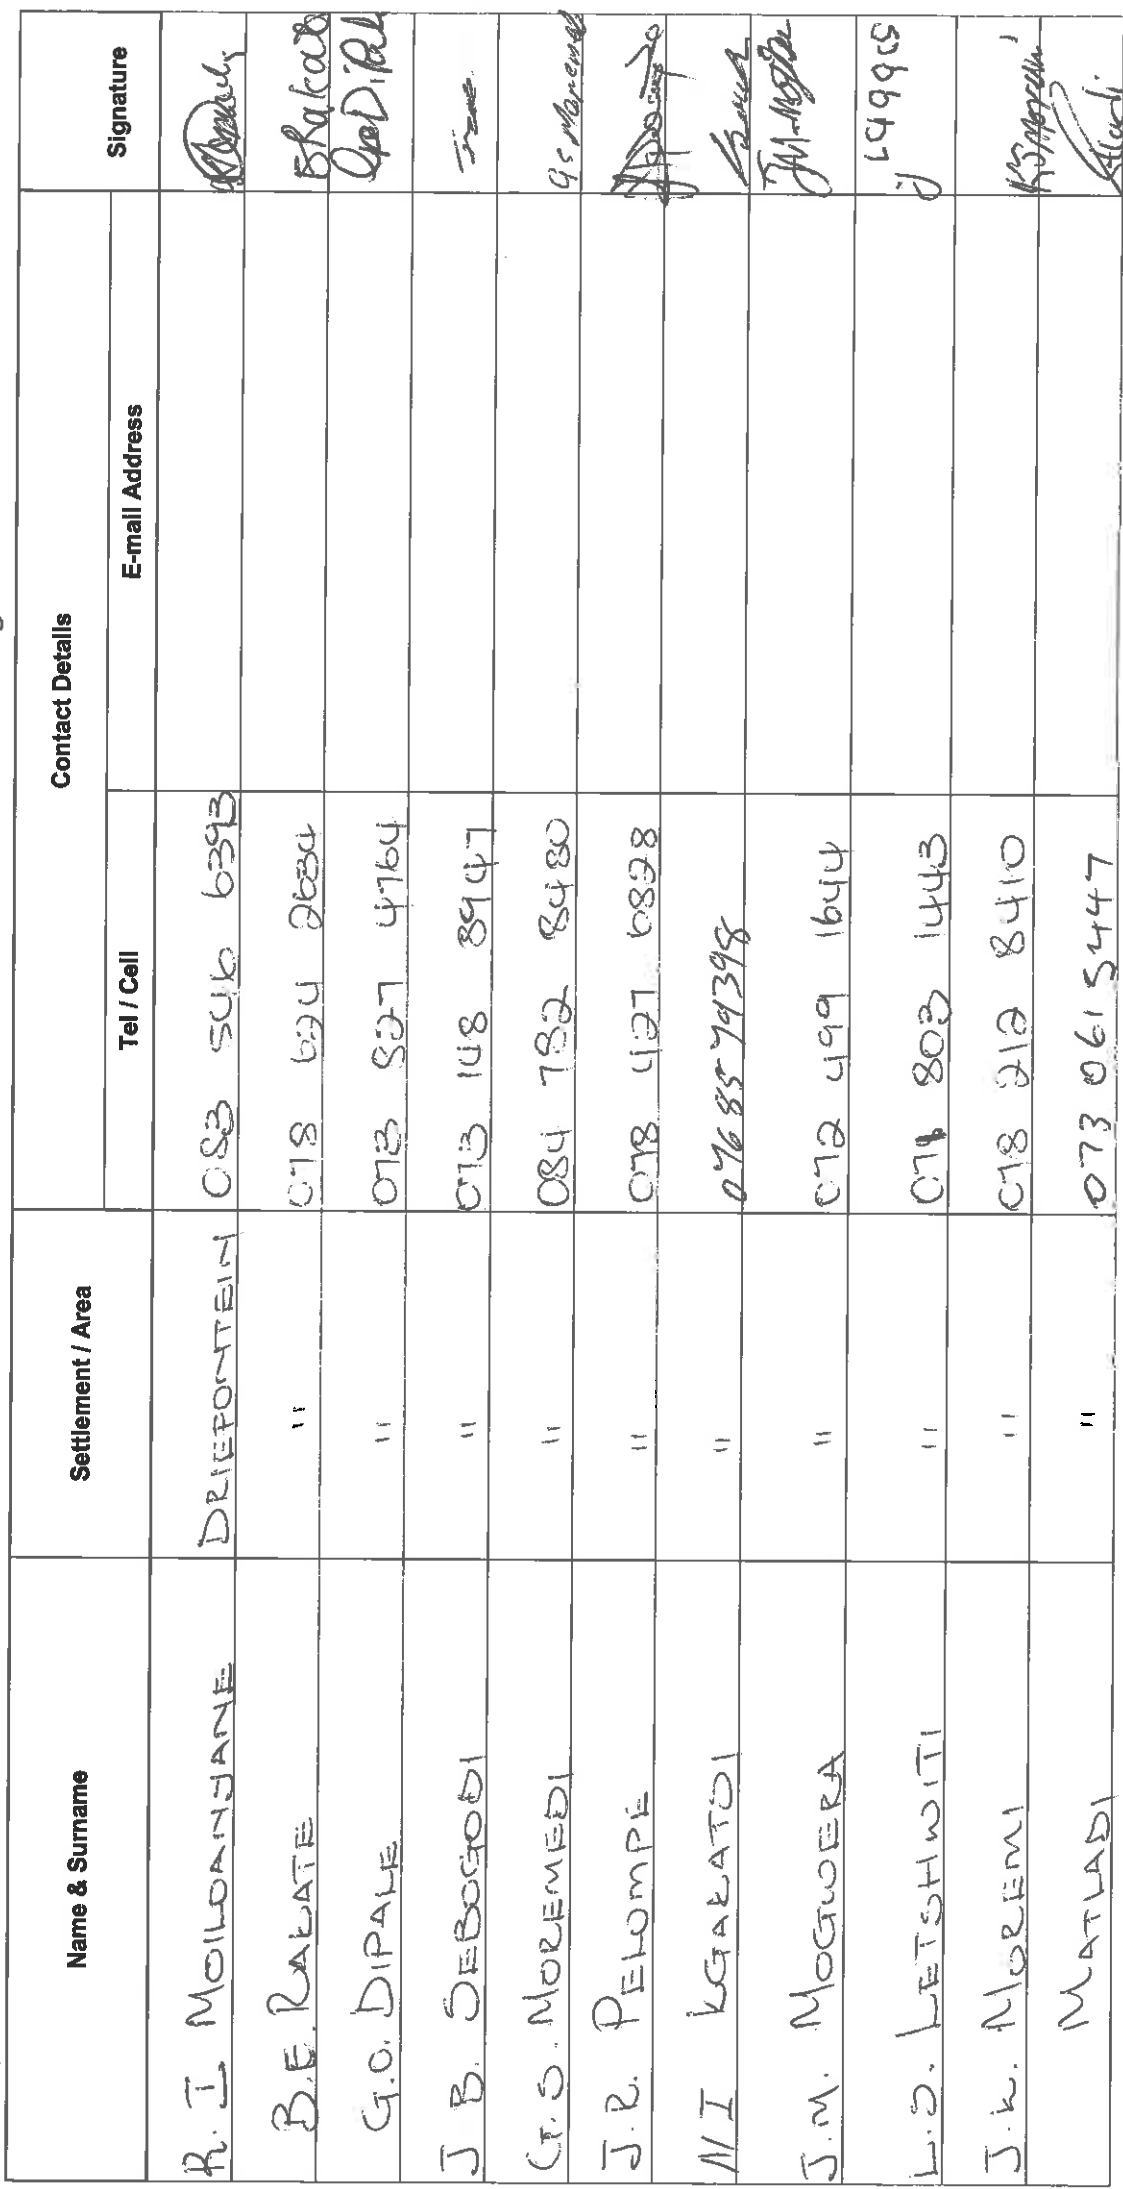 Name & Surname Settlement / Area Contact Details Signature
Tel / Cell E-mail Address
R. I MOILOANYANE DRIEFONTEIN 083 546 6393
B.E. RAKATE " 078 624 2634 BRakate
G.O. DIPALE " 073 827 4764
J B. SEBOGODI " 073 148 8947
G.S. MOREMEDI " 084 782 8480
J.R. PELOMPE " 078 427 6828
N I KGAKATOI " 07685794398
J.M. MOGWERA " 072 499 1644
L.S. LETSHWITI " 071 803 1443
J.K. MOREMI " 078 212 8410
MATLADI " 073 061 5447